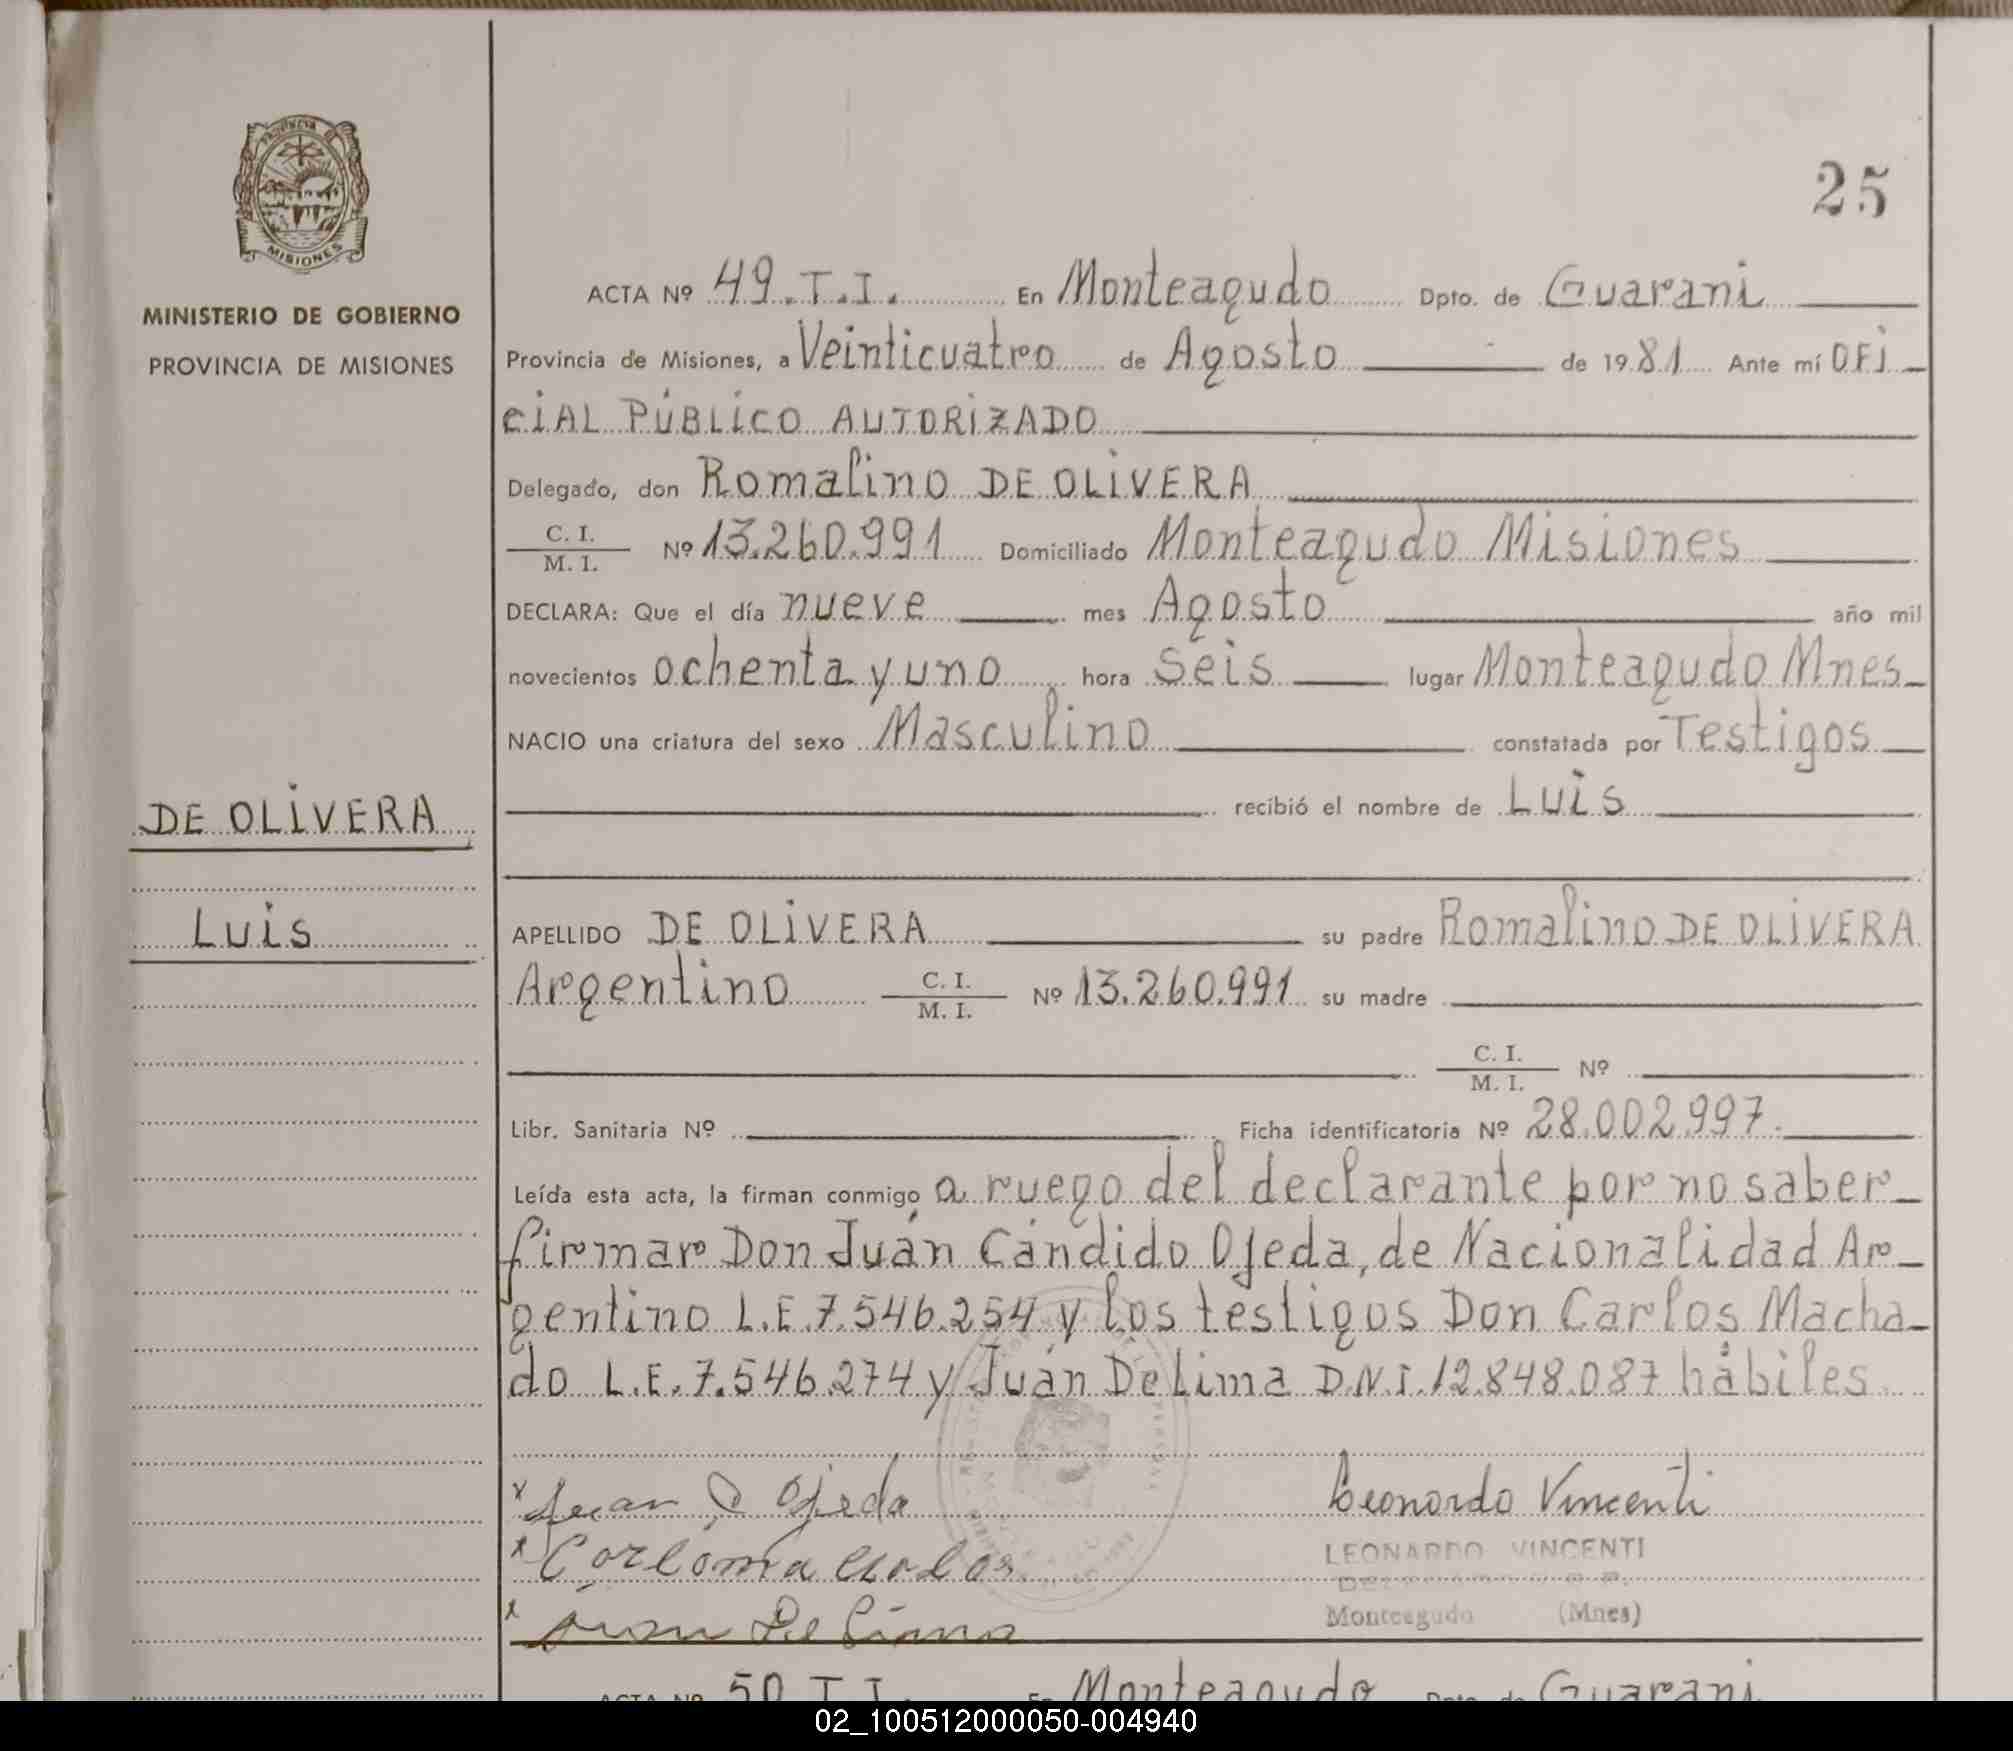 PROVINCIA D
MISIONES
MINISTERIO DE GOBIERNO
PROVINCIA DE MISIONES
DE OLIVERA
Luis
25
ACTA Nº 49.T.I. En Monteagudo Dpto. de Guarani
Provincia de Misiones, a Veinticuatro de Agosto de 1981 Ante mí OFI
CIAL PÚBLICO AUTORIZADO
Delegado, don Romalino DE OLIVERA
C. I.
M. I. Nº 13.260.991 Domiciliado Monteagudo Misiones
DECLARA: Que el día nueve mes Agosto año mil
novecientos ochenta y uno hora Seis lugar Monteagudo Mnes
NACIO una criatura del sexo Masculino constatada por Testigos
recibió el nombre de Luis
APELLIDO DE OLIVERA su padre Romalino DE OLIVERA
Argentino C. I. M. I. Nº 13.260.991 su madre
C. I.
M. I. Nº
Libr. Sanitaria Nº Ficha identificatoria Nº 28.002.997.
Leída esta acta, la firman conmigo a ruego del declarante por no saber
firmar Don Juán Cándido Ojeda, de Nacionalidad Ar-
gentino L.E.7.546.254 y los testigos Don Carlos Macha-
do L.E.7.546.274 y Juán De Lima D.N.I.12.848.087 hábiles
x Juan C Ojeda
Leonardo Vincenti
x Carlo Machado
LEONARDO VINCENTI
Monteagudo (Mnes)
x Juan De Lima
ACTA Nº 50 T I. En Monteagudo Dpto. de Guarani
02_100512000050-004940